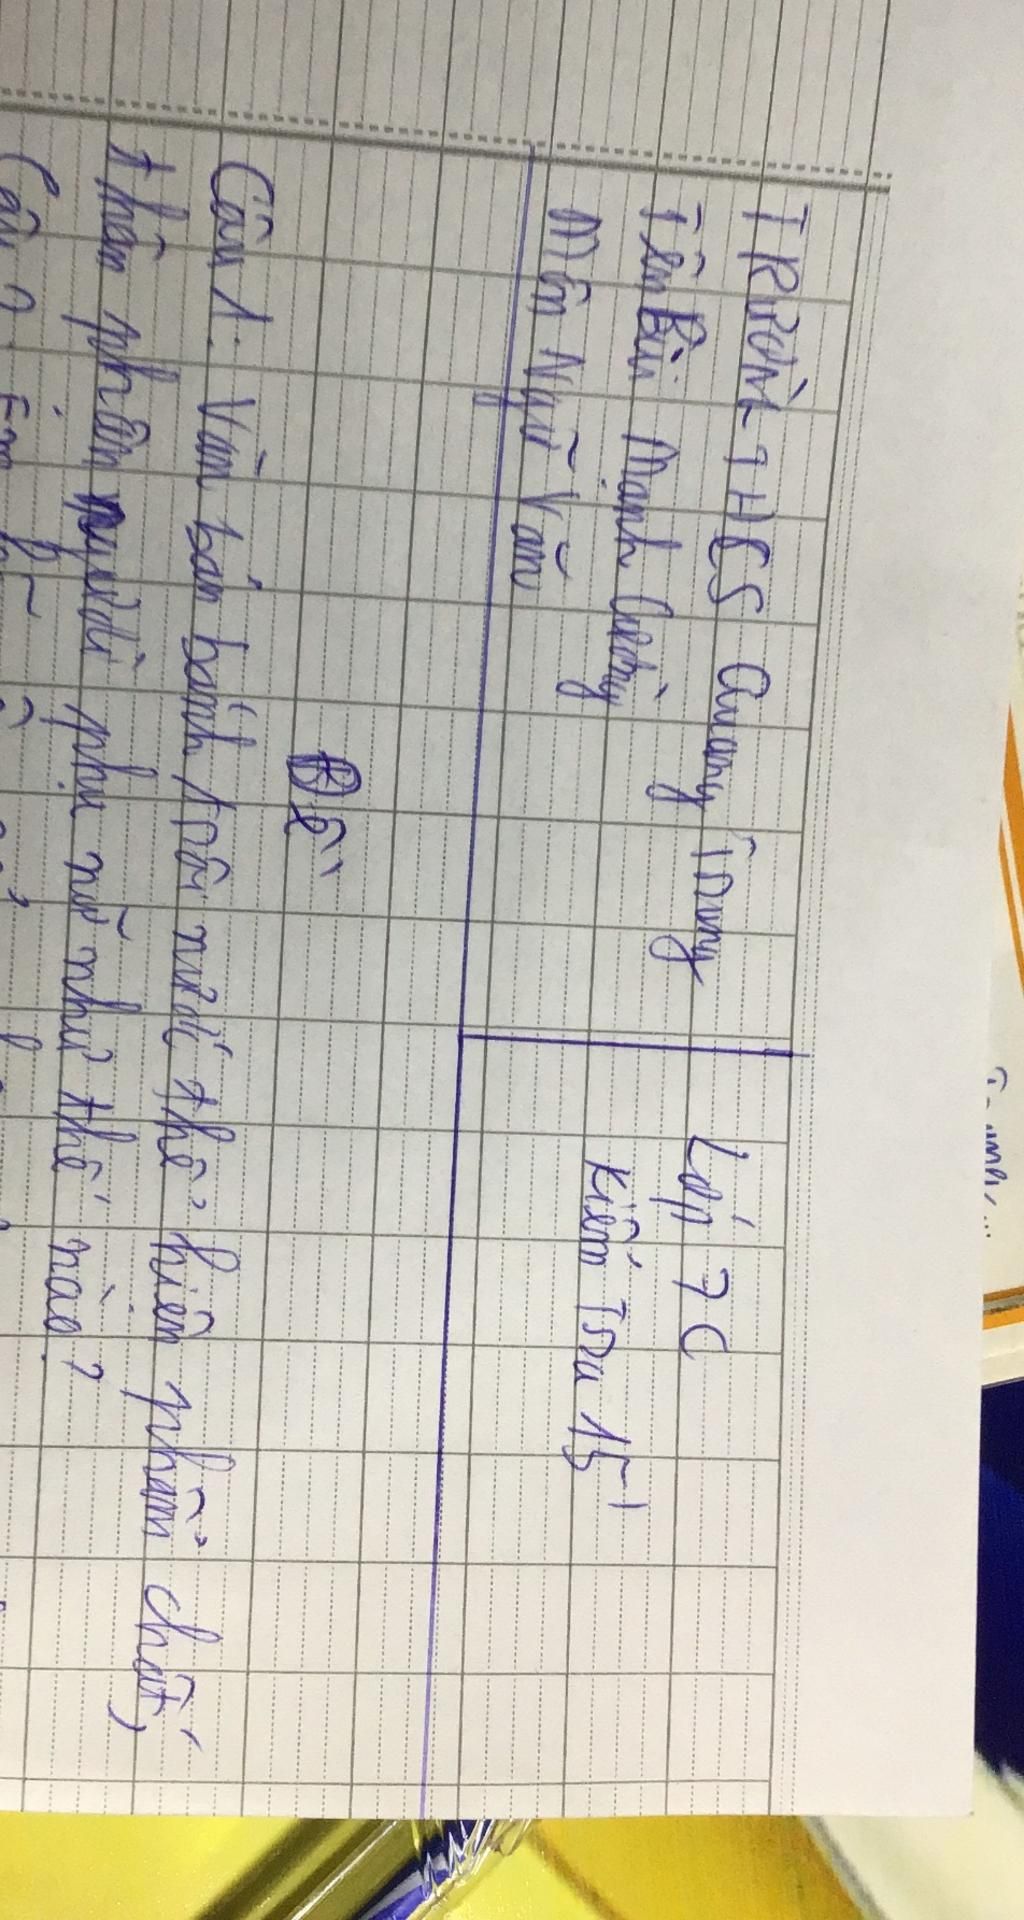 TRƯỜNG THCS Quang Trung
Lớp 7C
Tên Bùi Mạnh Cường
Kiểm Tra 15'
Môn Ngữ Văn
Đề
Câu 1. Văn bản bánh trôi nước thể hiện phẩm chất,
thân phận người phụ nữ như thế nào?
Câu 2. Em